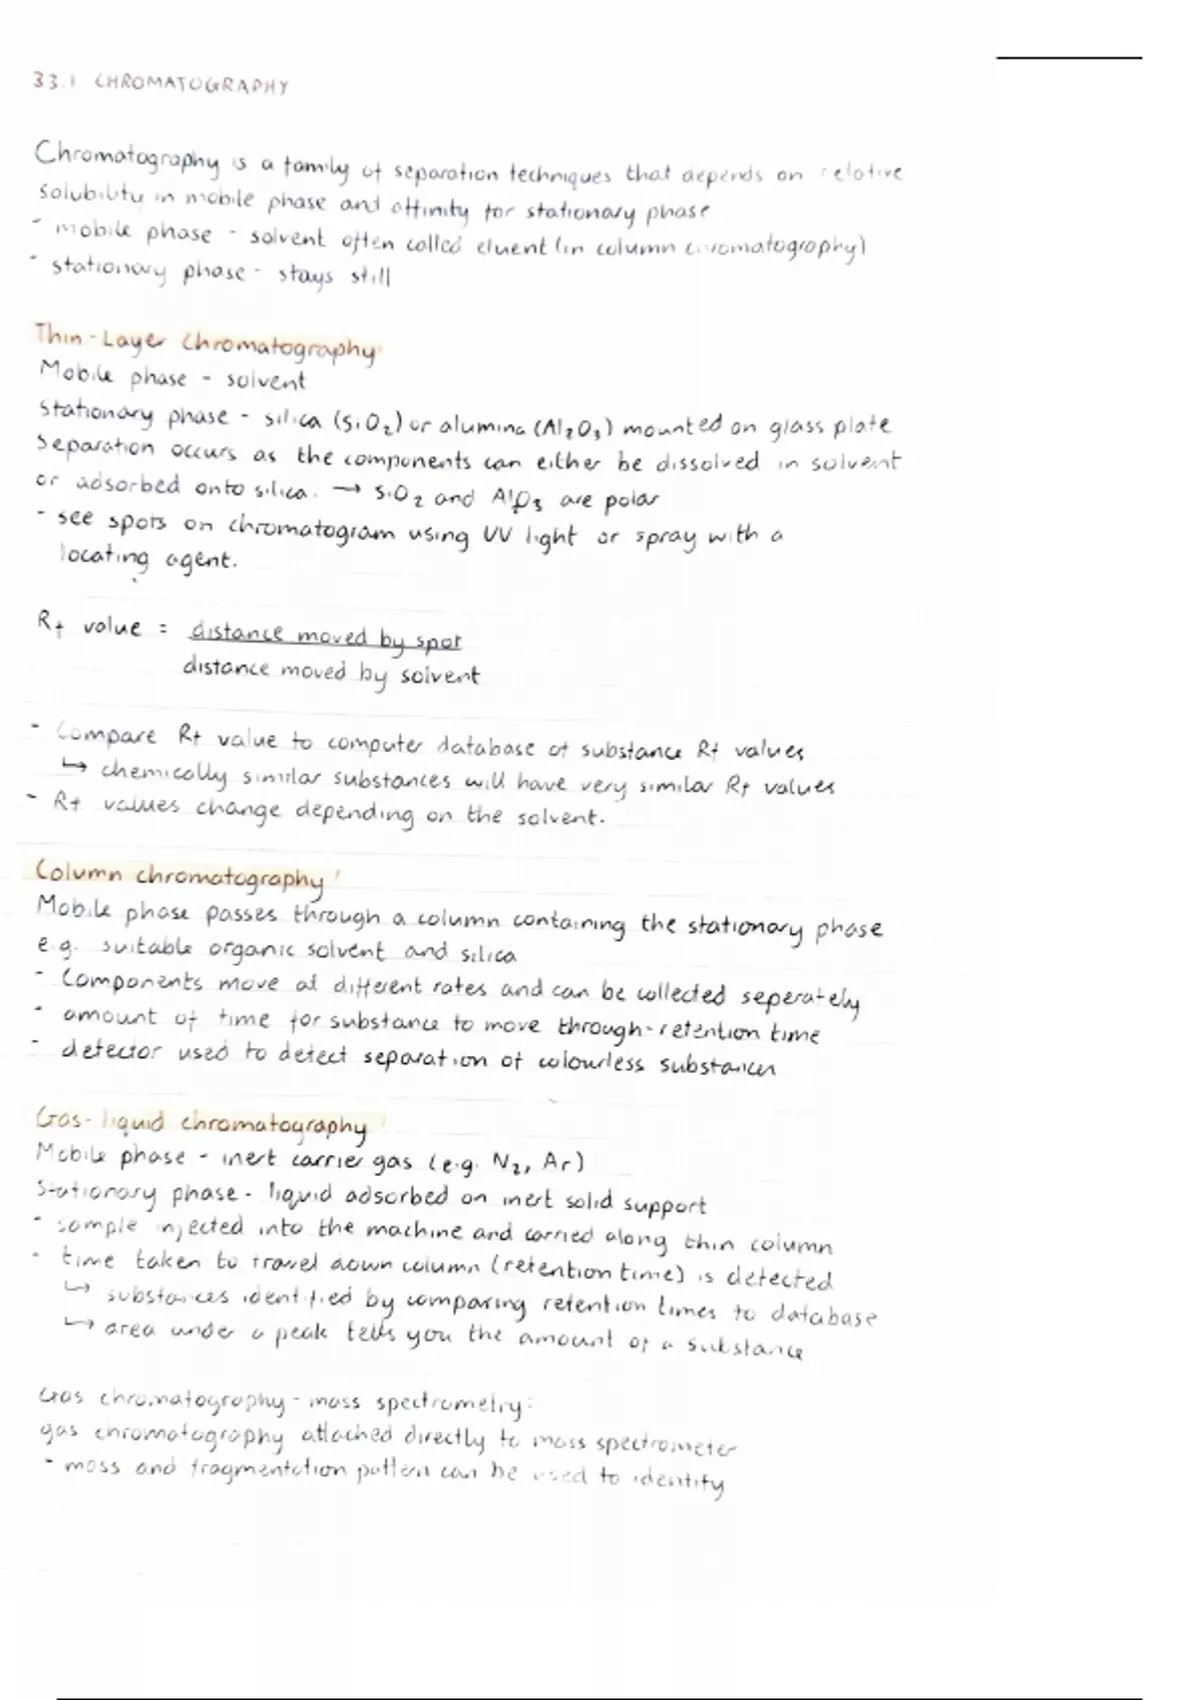 33.1 CHROMATOGRAPHY
Chromatography is a family of separation techniques that depends on relative
solubility in mobile phase and affinity for stationary phase
- mobile phase - solvent often called eluent (in column chromatography)
- stationary phase - stays still
Thin-Layer Chromatography
Mobile phase - solvent
Stationary phase - silica (SiO₂) or alumina (Al₂O₃) mounted on glass plate
Separation occurs as the components can either be dissolved in solvent
or adsorbed onto silica. → SiO₂ and Al₂O₃ are polar
- see spots on chromatogram using UV light or spray with a
locating agent.
Rf value = distance moved by spot
distance moved by solvent
- Compare Rf value to computer database of substance Rf values
↳ chemically similar substances will have very similar Rf values
- Rf values change depending on the solvent.
Column chromatography
Mobile phase passes through a column containing the stationary phase
e.g. suitable organic solvent and silica
- Components move at different rates and can be collected seperately
- amount of time for substance to move through - retention time
- detector used to detect separation of colourless substances
Gas-liquid chromatography
Mobile phase - inert carrier gas (e.g. N₂, Ar)
Stationary phase - liquid adsorbed on inert solid support
- sample injected into the machine and carried along thin column
- time taken to travel down column (retention time) is detected
↳ substances identified by comparing retention times to database
↳ area under a peak tells you the amount of a substance
Gas chromatography - mass spectrometry:
gas chromatography attached directly to mass spectrometer
- mass and fragmentation pattern can be used to identify